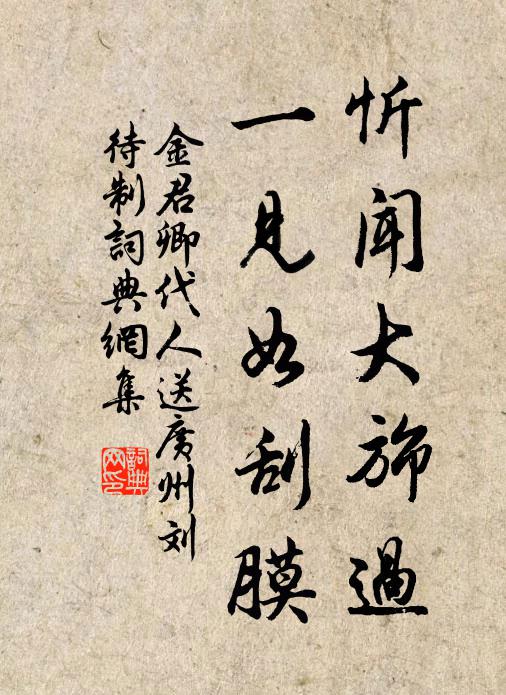 忻聞大旆過
一見如刮膜
金君卿代人送廣州刘
待制詞典網集
詞典
网印